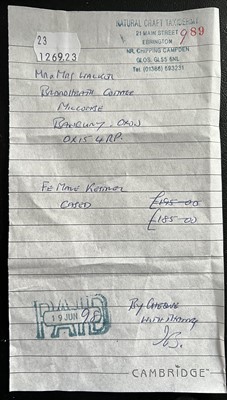 23
1269,23
NATURAL CRAFT TAXIDERMY
21 MAIN STREET
EBRINGTON
NR. CHIPPING CAMPDEN
GLOS. GL55 6NL
Tel (01386) 593231
989
Mr & Mrs Walker
Broadheath Cottage
Milcombe
Banbury. Oxon
OX15 4RP.
Female Kestrel
Cased
£195-00
£185-00
PAID
19 JUN 98
By Cheque
With Thanks
CAMBRIDGE